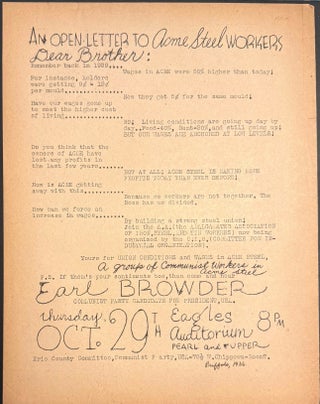 AN OPEN LETTER TO Acme Steel WORKERS
Dear Brother:
Remember back in 1929....
Wages in ACME were 50% higher than today!
For instance, Welders
were getting 9¢ & 12¢
per mould......
Now they get 5¢ for the same mould!
Have our wages gone up
to meet the higher cost
of living.........
NO: Living conditions are going up day by
day..Food-40%, Rent-50% and still going up!
BUT OUR WAGES ARE ANCHORED AT LOW LEVELS!
Do you think that the
owners of ACME have
lost any profits in
the last few years....
NOT AT ALL: ACME STEEL IS MAKING MORE
PROFITS TODAY THAN EVER BEFORE!
How is ACME getting
away with this.....
Because we workers are not together. The
Boss has us divided.
How can we force an
increase in wages....
By building a strong steel union!
Join the A.A. (the AMALGAMATED ASSOCIATION
OF IRON, STEEL AND TIN WORKERS) now being
organized by the C.I.O. (COMMITTEE FOR IN-
DUSTRIAL ORGANIZATION.
Yours for UNION CONDITIONS and WAGES IN ACME STEEL,
A group of Communist Workers in
Acme Steel
P.S. If these's your sentiments too, than come and hear
Earl BROWDER
COMMUNIST PARTY CANDIDATE FOR PRESIDENT, USA.
Thursday. OCT. 29TH Eagles Auditorium 8 P.M.
PEARL and TUPPER
Erie County Committee, Communist Party, USA-70½ W. Chippewa
Buffalo, 1936